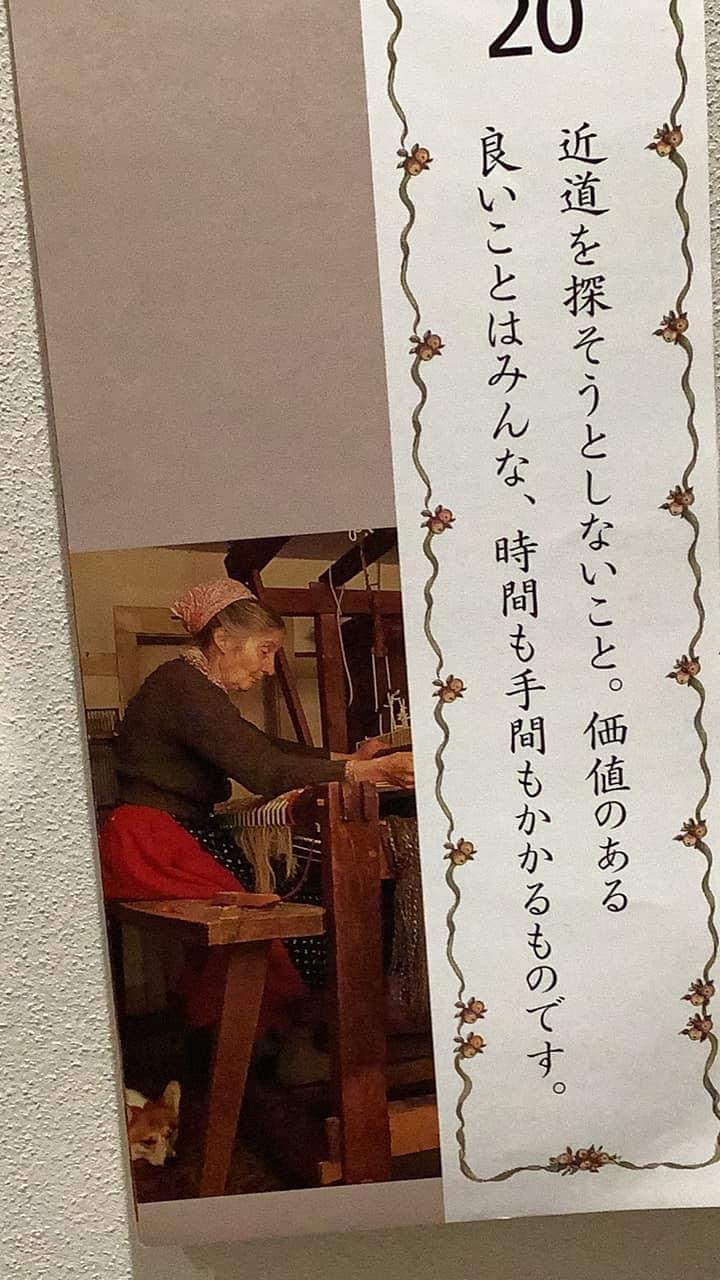 20
近道を探そうとしないこと。価値のある
良いことはみんな、時間も手間もかかるものです。